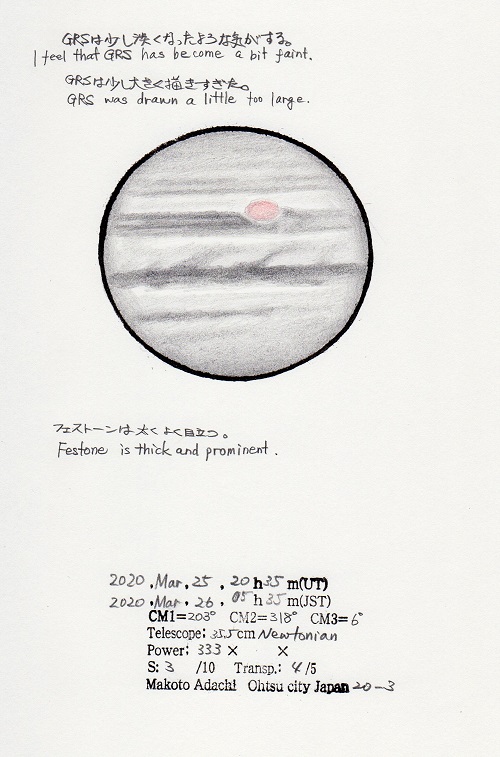 GRSは少し淡くなったような気がする。
I feel that GRS has become a bit faint.
GRSは少し大きく描きすぎた。
GRS was drawn a little too large.
フェストーンは太くよく目立つ。
Festone is thick and prominent.
2020, Mar, 25, 20 h 35 m(UT)
2020, Mar, 26, 05 h 35 m(JST)
CM1=203° CM2=318° CM3=6°
Telescope: 35.5cm Newtonian
Power: 333 × ×
S: 3 /10 Transp.: 4/5
Makoto Adachi Ohtsu city Japan 20-3